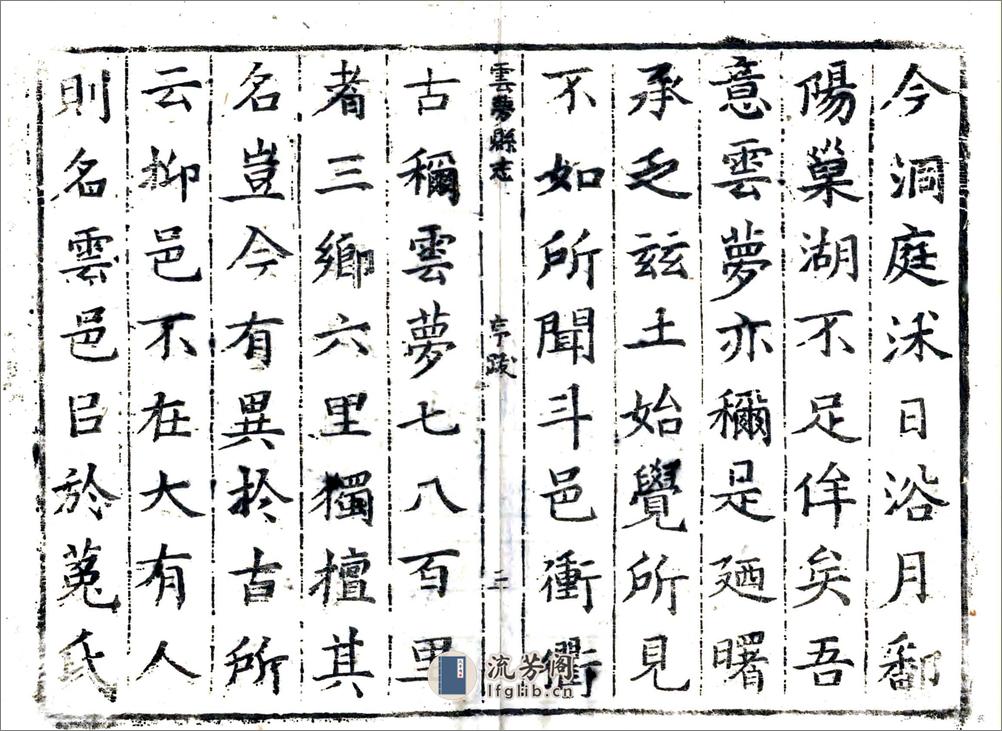 今洞庭沭日浴月鄱
陽巢湖不足侔矣吾
意雲夢亦穪是廼曙
承乏玆土始覺所見
不如所聞斗邑衝衢
雲夢縣志 序跋 二
古穪雲夢七八百里
者三鄉六里獨擅其
名豈今有異扵古所
云抑邑不在大有人
則名雲邑㠯於菟氏
流芳阁
lfglib.cn